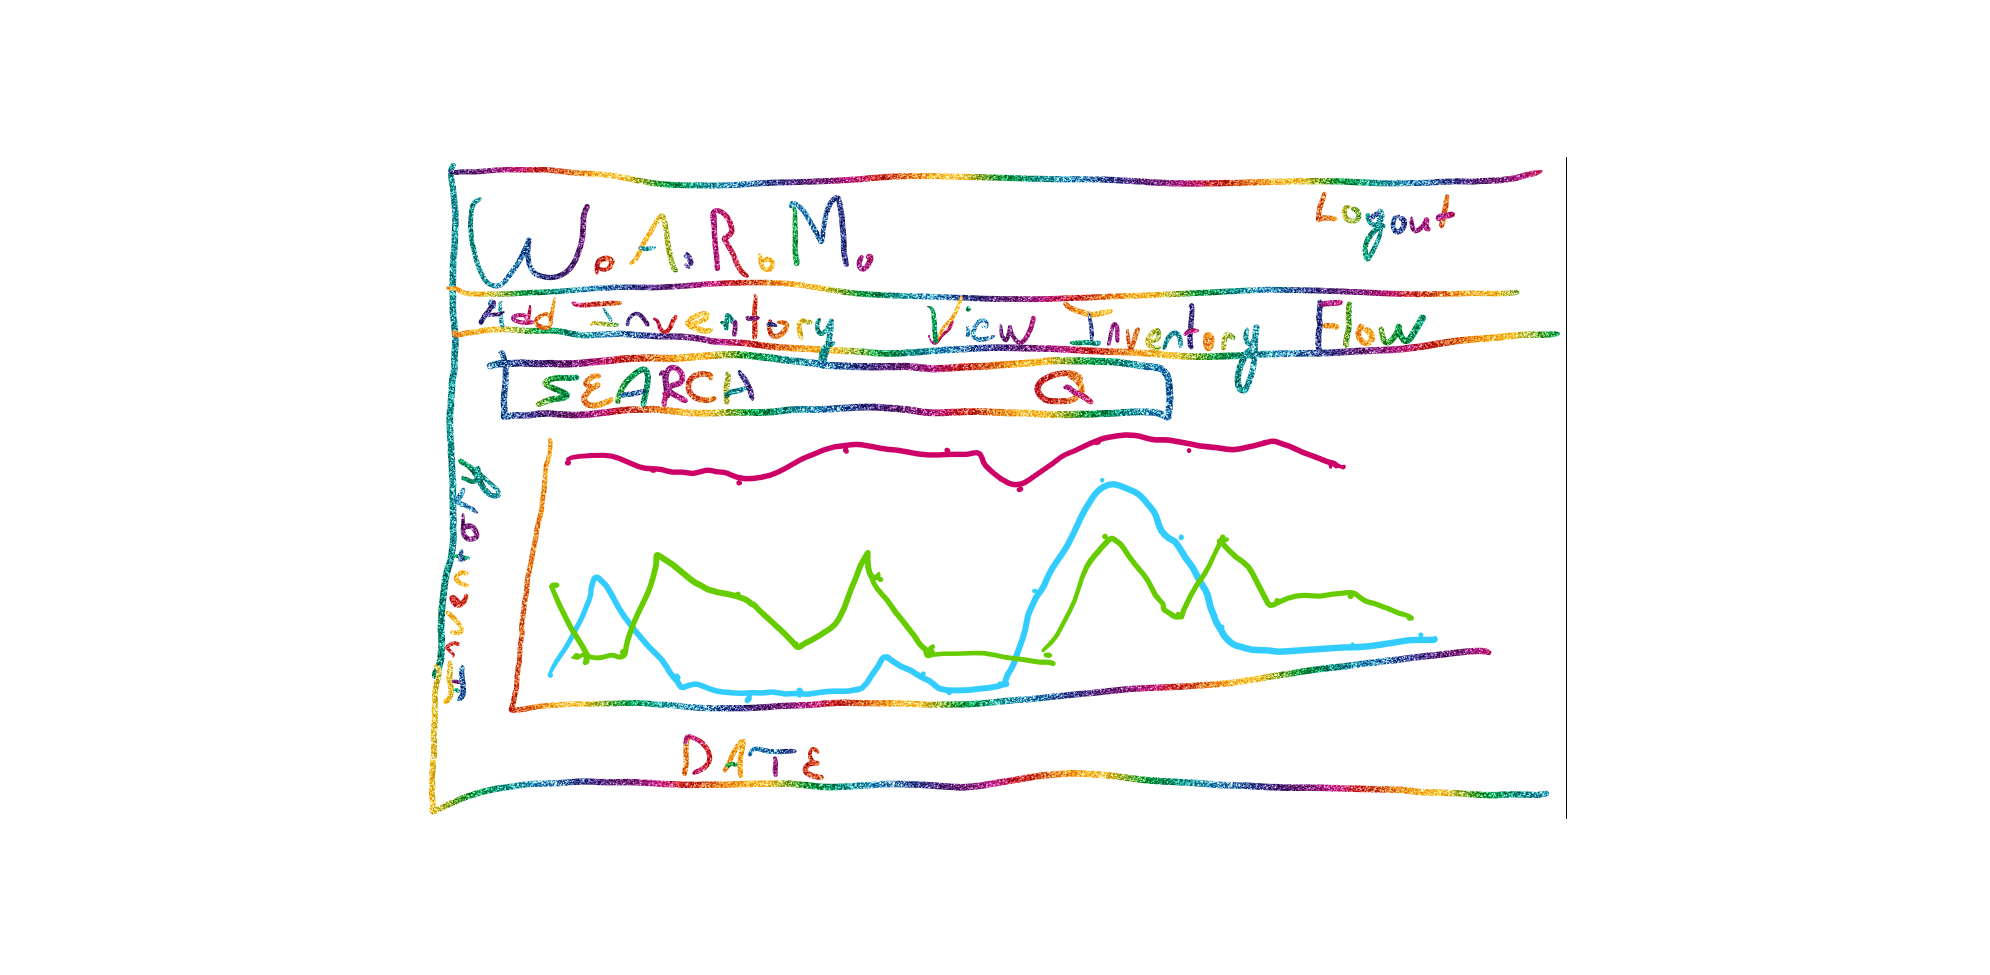 W.A.R.M.
Logout
Add Inventory View Inventory Flow
SEARCH
Inventory
DATE